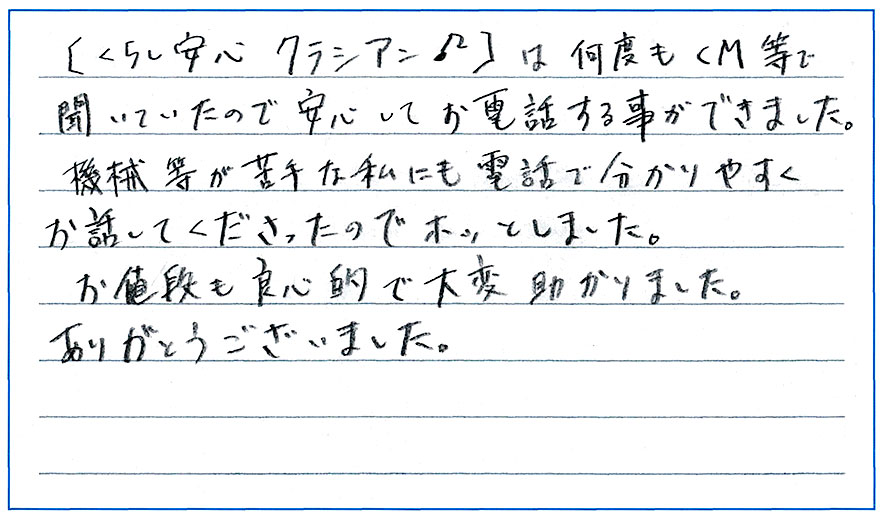 [くらし安心 クラシアン♪]は 何度も CM等で
聞いていたので 安心して お電話する事ができました。
機械等が苦手な私にも 電話で分かりやすく
お話してくださったのでホッとしました。
お値段も良心的で大変助かりました。
ありがとうございました。